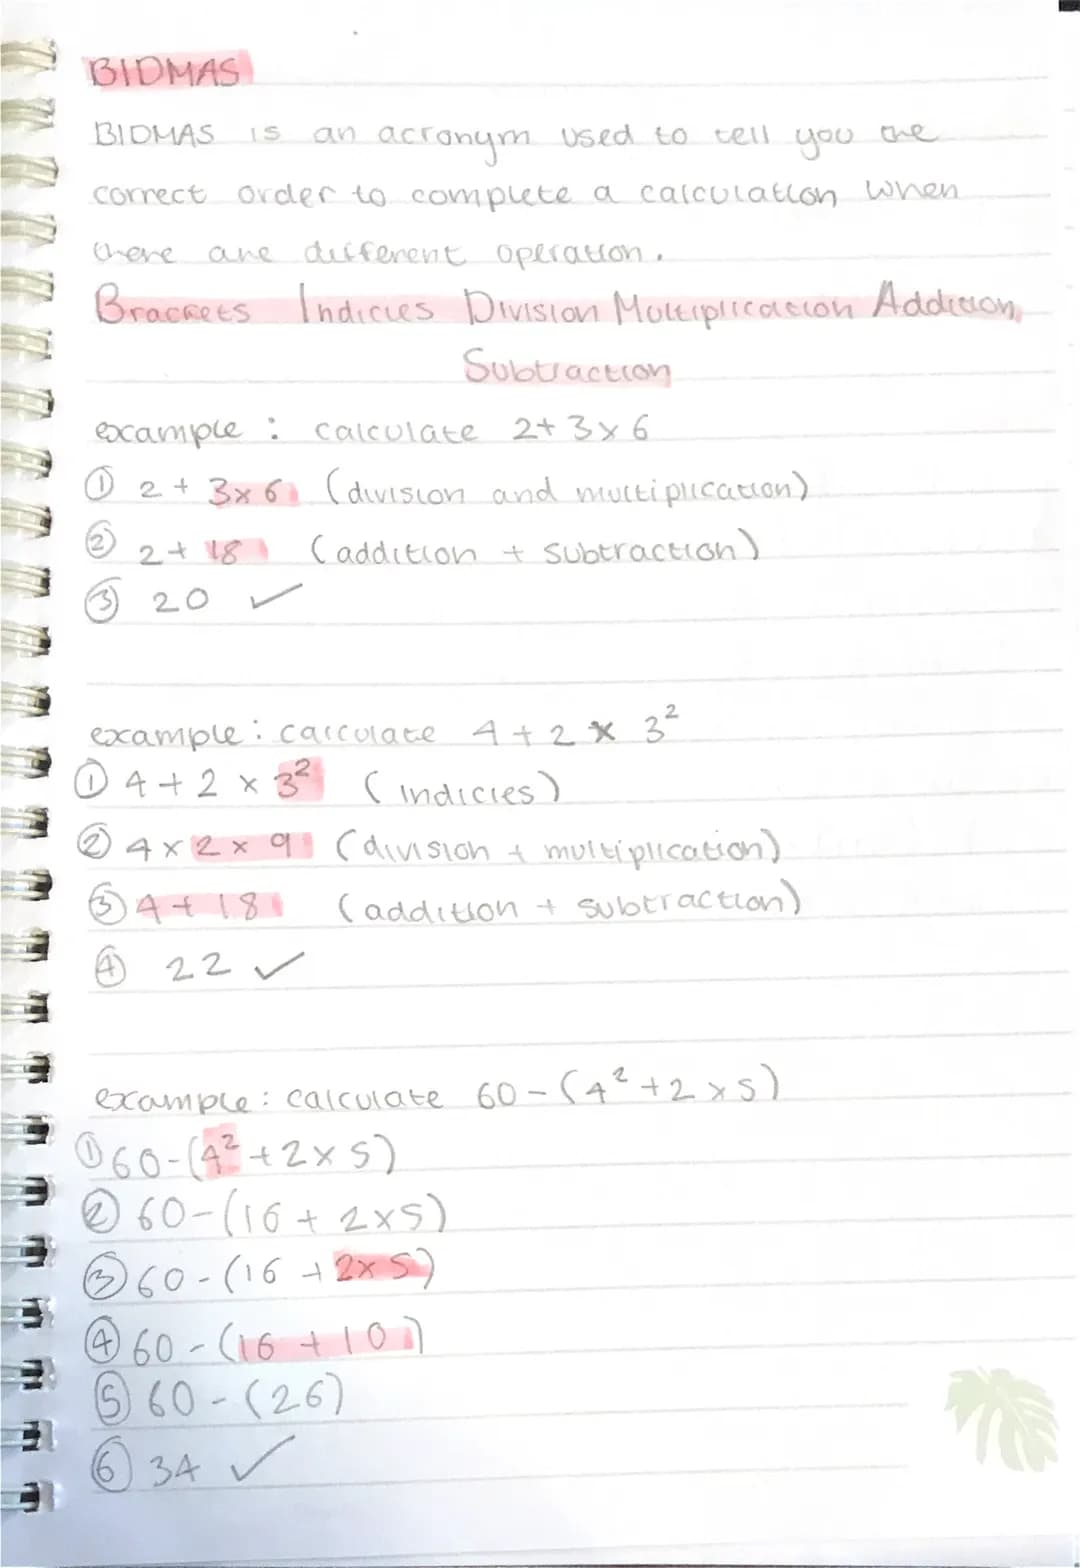 BIDMAS
BIDMAS is an acronym used to tell you the
correct order to complete a calculation when
there are different operation.
Brackets Indicies Division Multiplication Addition,
Subtraction
example : calculate 2+3×6
① 2 + 3×6 (division and multiplication)
② 2 + 18 (addition + subtraction)
③ 20 ✓
example : calculate 4 + 2 × 3²
① 4 + 2 × 3² (indicies)
② 4 × 2 × 9 (division + multiplication)
③ 4 + 18 (addition + subtraction)
④ 22 ✓
example : calculate 60-(4²+2×5)
① 60-(4²+2×5)
② 60-(16+2×5)
③ 60-(16+2×5)
④ 60-(16+10)
⑤ 60-(26)
⑥ 34 ✓